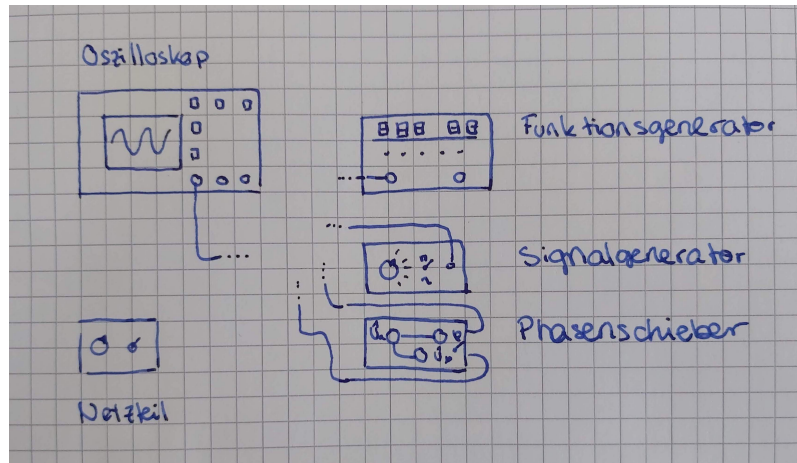 Oszilloskop
Funktionsgenerator
Signalgenerator
Phasenschieber
Netzteil